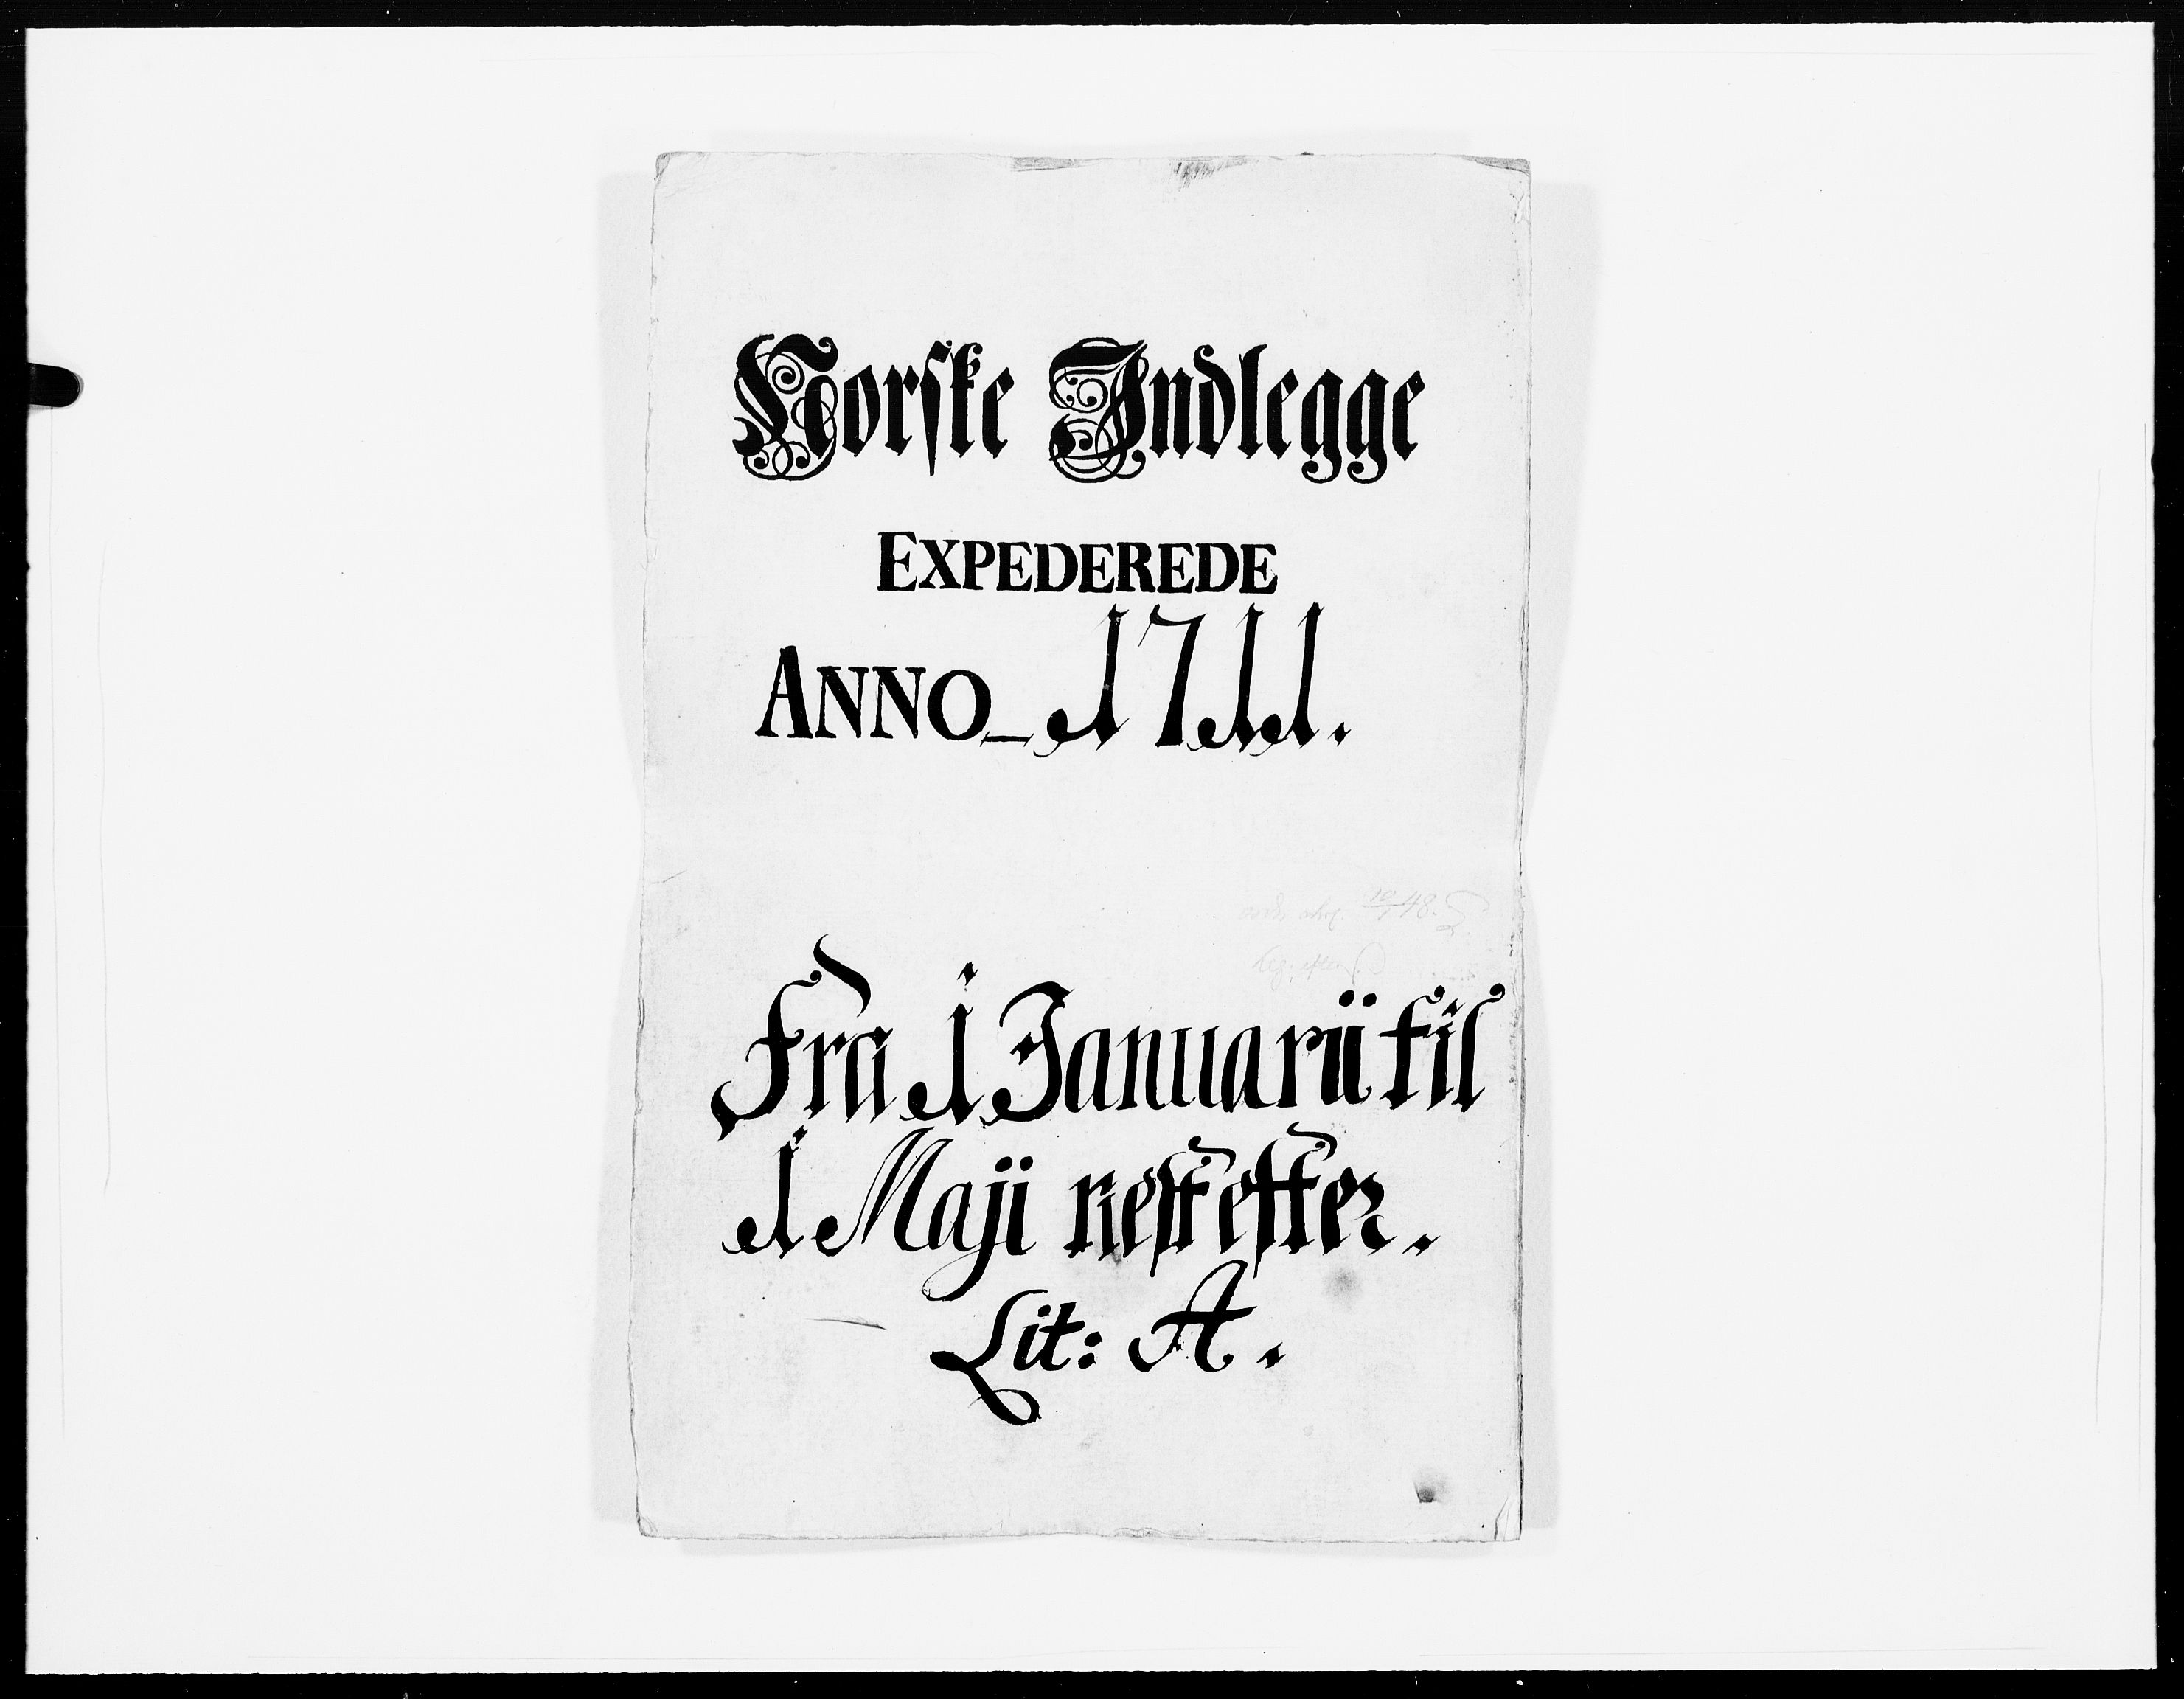 Norske Indlegge
EXPEDEREDE
ANNO_ 1711.
10/1 48.
Fra 1 Januarii til
1 Maji nestefter.
Lit: A.